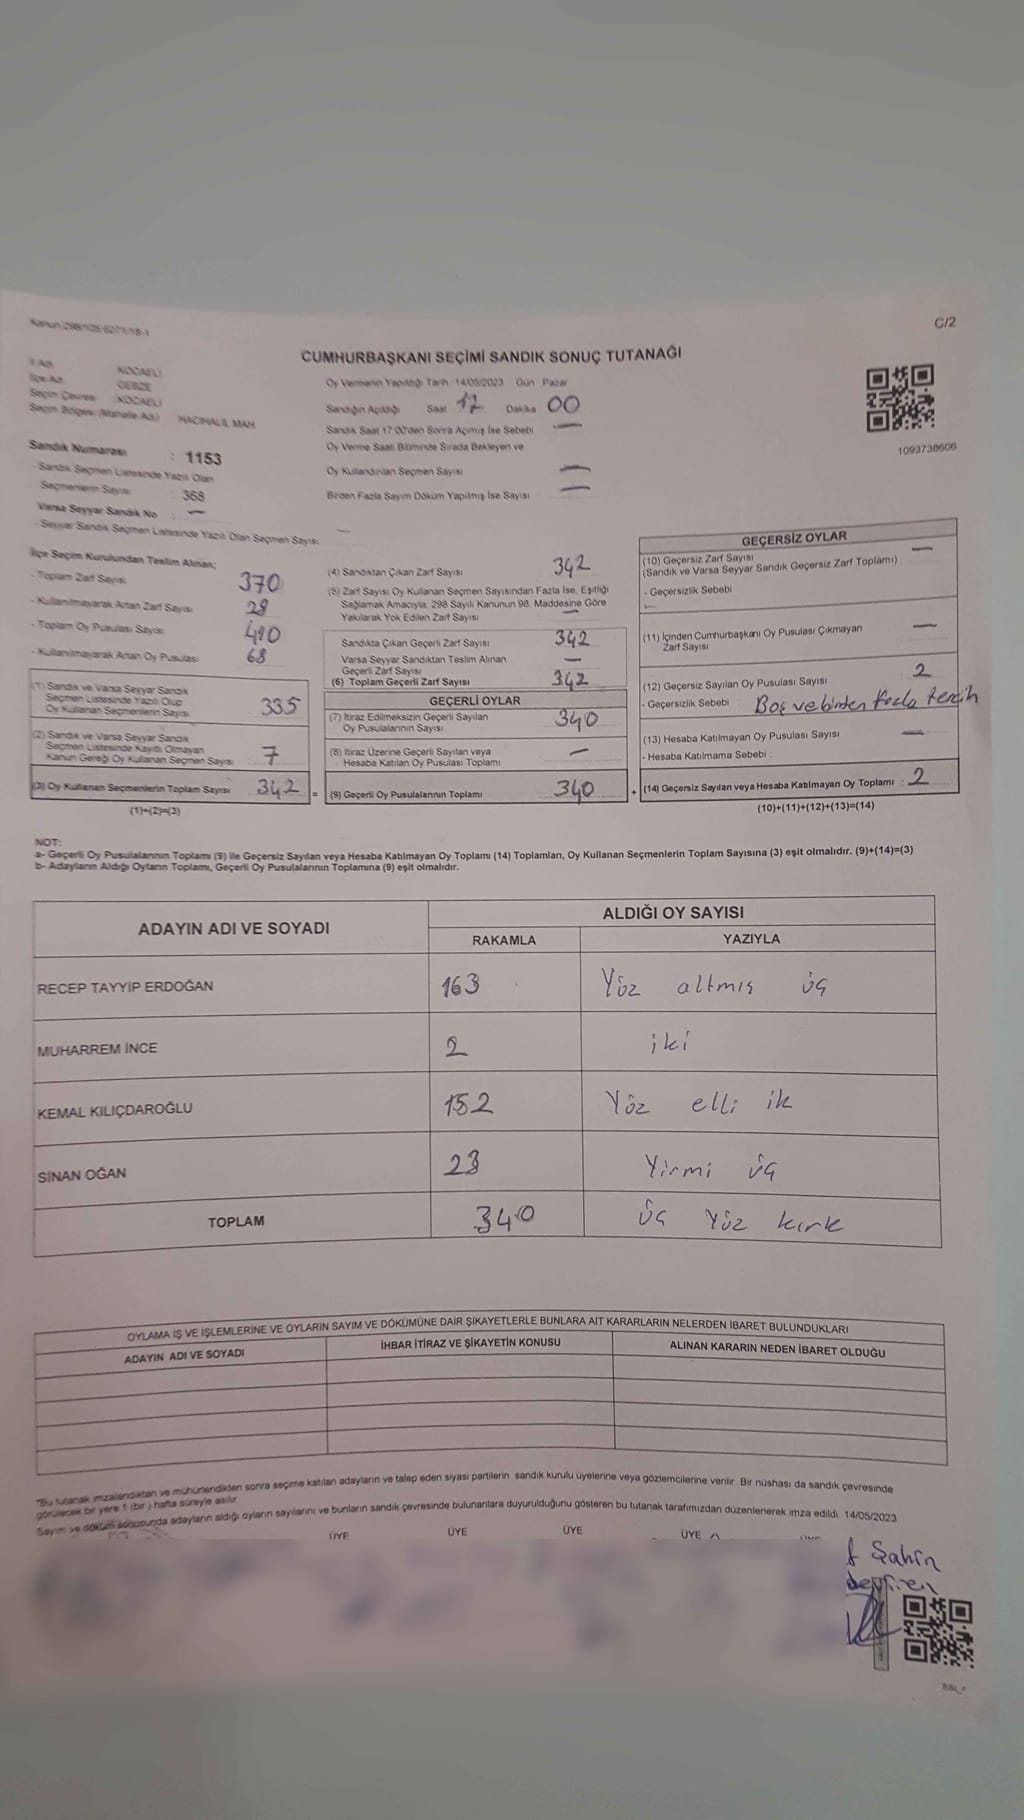 Kanun:298/105-6271/18-1
C/2
CUMHURBAŞKANI SEÇİMİ SANDIK SONUÇ TUTANAĞI
İl Adı KOCAELİ
İlçe Adı GEBZE
Seçim Çevresi KOCAELİ
Seçim Bölgesi (Mahalle Adı) HACIHALİL MAH.
Sandık Numarası : 1153
- Sandık Seçmen Listesinde Yazılı Olan
Seçmenlerin Sayısı : 368
Varsa Seyyar Sandık No : —
- Seyyar Sandık Seçmen Listesinde Yazılı Olan Seçmen Sayısı —
Oy Vermenin Yapıldığı Tarih 14/05/2023 Gün Pazar
Sandığın Açıldığı Saat 17 Dakika 00
Sandık Saat 17:00'den Sonra Açılmış İse Sebebi —
Oy Verme Saati Bitiminde Sırada Bekleyen ve
Oy Kullandırılan Seçmen Sayısı —
Birden Fazla Sayım Döküm Yapılmış İse Sayısı —
1093738606
İlçe Seçim Kurulundan Teslim Alınan;
- Toplam Zarf Sayısı 370
- Kullanılmayarak Artan Zarf Sayısı 28
- Toplam Oy Pusulası Sayısı 410
- Kullanılmayarak Artan Oy Pusulası 68
(1) Sandık ve Varsa Seyyar Sandık
Seçmen Listesinde Yazılı Olup
Oy Kullanan Seçmenlerin Sayısı 335
(2) Sandık ve Varsa Seyyar Sandık
Seçmen Listesinde Kayıtlı Olmayan
Kanun Gereği Oy Kullanan Seçmen Sayısı 7
(3) Oy Kullanan Seçmenlerin Toplam Sayısı 342 =
(1)+(2)=(3)
(4) Sandıktan Çıkan Zarf Sayısı 342
(5) Zarf Sayısı Oy Kullanan Seçmen Sayısından Fazla İse, Eşitliği
Sağlamak Amacıyla, 298 Sayılı Kanunun 98. Maddesine Göre
Yakılarak Yok Edilen Zarf Sayısı —
Sandıkta Çıkan Geçerli Zarf Sayısı 342
Varsa Seyyar Sandıktan Teslim Alınan
Geçerli Zarf Sayısı —
(6) Toplam Geçerli Zarf Sayısı 342
GEÇERLİ OYLAR
(7) İtiraz Edilmeksizin Geçerli Sayılan
Oy Pusulalarının Sayısı 340
(8) İtiraz Üzerine Geçerli Sayılan veya
Hesaba Katılan Oy Pusulası Toplamı —
(9) Geçerli Oy Pusulalarının Toplamı 340 +
GEÇERSİZ OYLAR
(10) Geçersiz Zarf Sayısı —
(Sandık ve Varsa Seyyar Sandık Geçersiz Zarf Toplamı)
- Geçersizlik Sebebi
—
(11) İçinden Cumhurbaşkanı Oy Pusulası Çıkmayan
Zarf Sayısı —
(12) Geçersiz Sayılan Oy Pusulası Sayısı : 2
- Geçersizlik Sebebi : Boş ve birden fazla tercih
(13) Hesaba Katılmayan Oy Pusulası Sayısı —
- Hesaba Katılmama Sebebi :
(14) Geçersiz Sayılan veya Hesaba Katılmayan Oy Toplamı : 2
(10)+(11)+(12)+(13)=(14)
NOT:
a- Geçerli Oy Pusulalarının Toplamı (9) ile Geçersiz Sayılan veya Hesaba Katılmayan Oy Toplamı (14) Toplamları, Oy Kullanan Seçmenlerin Toplam Sayısına (3) eşit olmalıdır. (9)+(14)=(3)
b- Adayların Aldığı Oyların Toplamı, Geçerli Oy Pusulalarının Toplamına (9) eşit olmalıdır.
ADAYIN ADI VE SOYADI ALDIĞI OY SAYISI
RAKAMLA YAZIYLA
RECEP TAYYİP ERDOĞAN 163 Yüz altmış üç
MUHARREM İNCE 2 iki
KEMAL KILIÇDAROĞLU 152 Yüz elli ik
SİNAN OĞAN 23 Yirmi üç
TOPLAM 340 üç Yüz kırk
OYLAMA İŞ VE İŞLEMLERİNE VE OYLARIN SAYIM VE DÖKÜMÜNE DAİR ŞİKAYETLERLE BUNLARA AİT KARARLARIN NELERDEN İBARET BULUNDUKLARI
ADAYIN ADI VE SOYADI İHBAR İTİRAZ VE ŞİKAYETİN KONUSU ALINAN KARARIN NEDEN İBARET OLDUĞU
"Bu tutanak imzalandıktan ve mühürlendikten sonra seçime katılan adayların ve talep eden siyasi partilerin sandık kurulu üyelerine veya gözlemcilerine verilir. Bir nüshası da sandık çevresinde
görülecek bir yere 1 (bir ) hafta süreyle asılır.
Sayım ve döküm sonucunda adayların aldığı oyların sayılarını ve bunların sandık çevresinde bulunanlara duyurulduğunu gösteren bu tutanak tarafımızdan düzenlenerek imza edildi. 14/05/2023
ÜYE ÜYE ÜYE ÜYE
Şahin